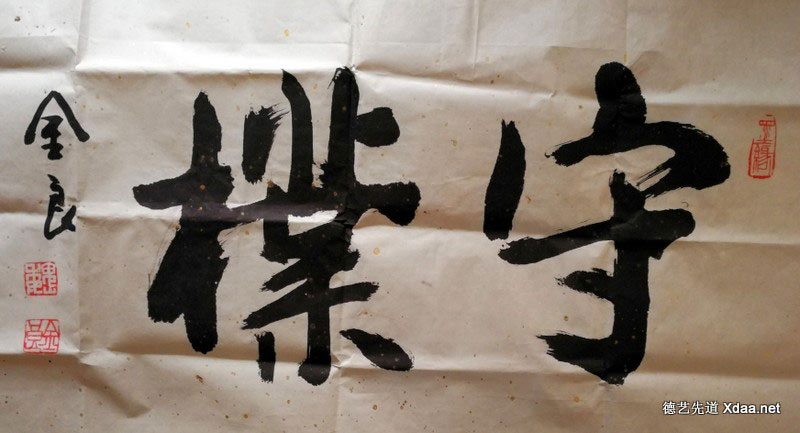 守樸
金良
德艺先道 Xdaa.net